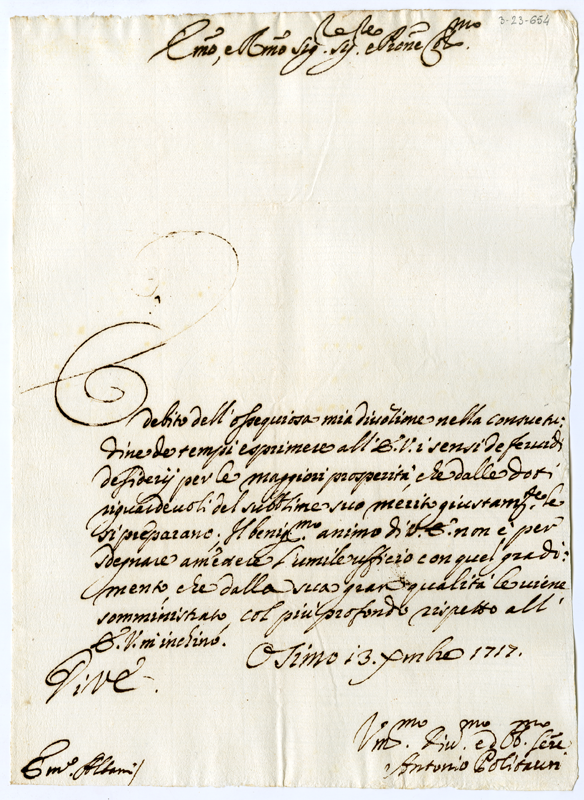 3-23-654
Emo, e Rmo Sig.re Sig.re e Prone Col.mo
È debito dell' ossequiosa mia divozione nella consuetu:
dine de tempi esprimere all' E.V. i sensi de fervidi
desiderij per le maggiori prosperità che dalle doti
riguardevoli del sublime suo merito giustam.te le
si preparano. Il benig.mo animo di V.E. non è per
sdegnare l'umile ufficio con quel gradi:
mento che dalla sua gran qualità le viene
somministrato, col più profondo rispetto all'
E.V. m'inchino.
Osimo 13. Xmbre 1717.
Di V.E.
Vm.mo Div.mo ed Obb.mo Serv.re
Antonio
Em.o Albani